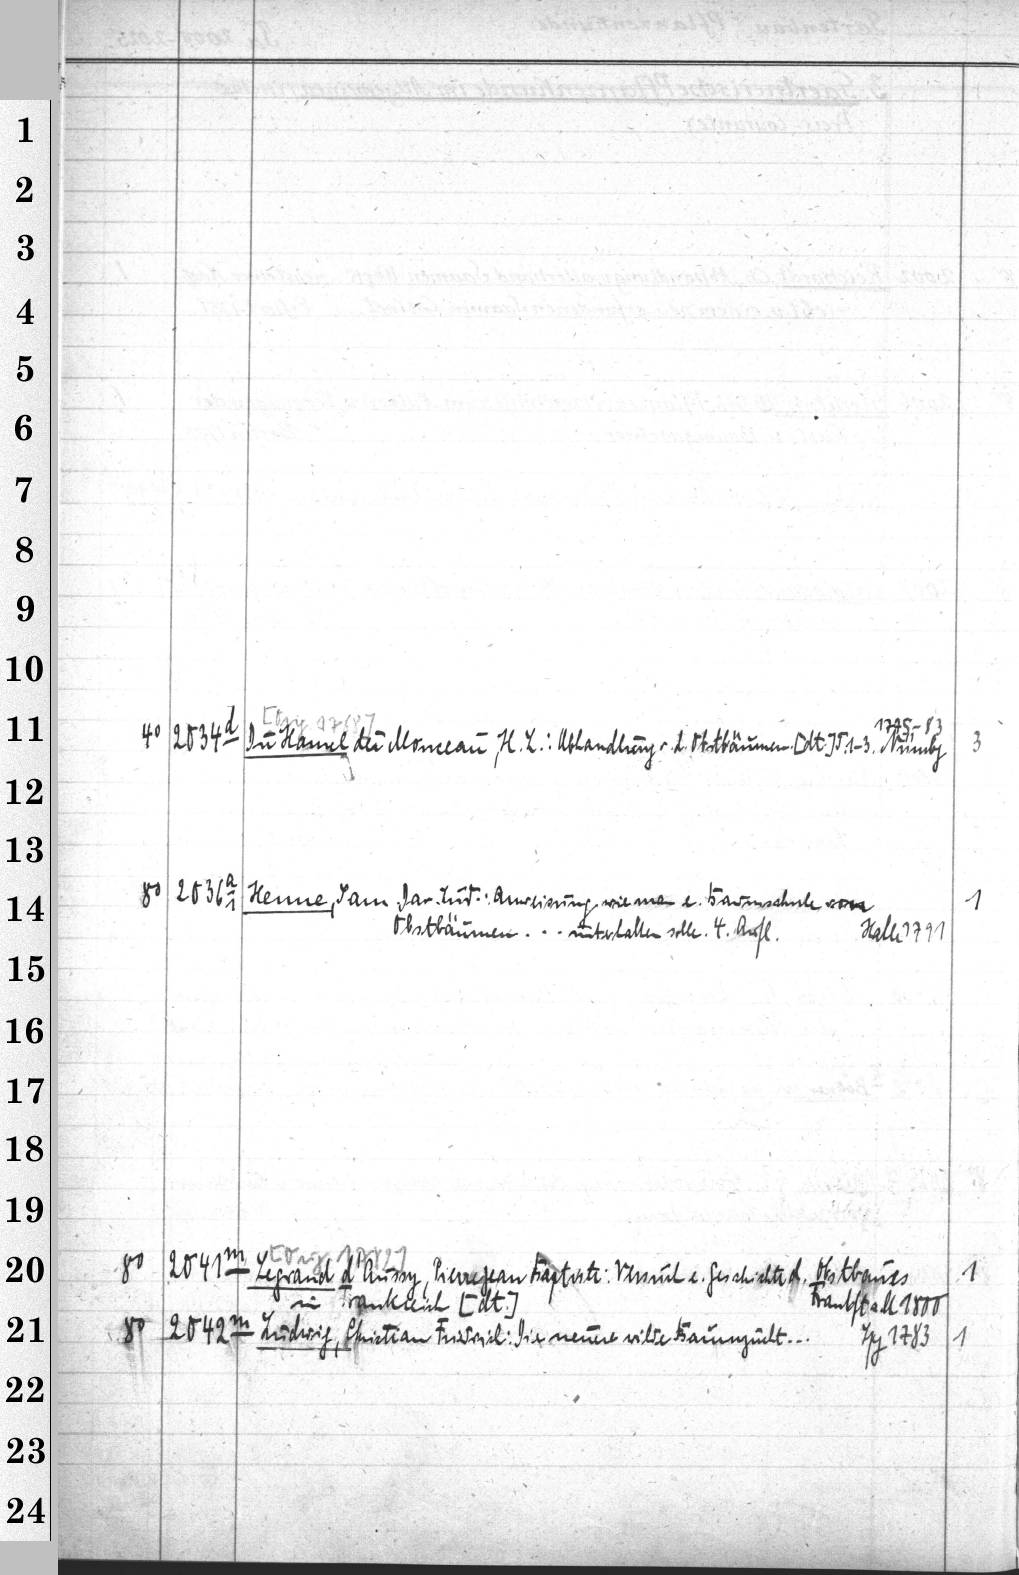 1
2
3
4
5
6
7
8
9
10
11
12
13
14
15
16
17
18
19
20
21
22
23
24
[Orig. 1768]
1775-83
4° 2034d Du Hamel du Monceau, H. L.: Abhandlung v. d. Obstbäumen [dt.] T. 1-3. Nürnbg 3
8° 2036a1 Henne, Sam. Dav. Lud.: Anweisung, wie man e. Baumschule von 1
Obstbäumen . . . unterhalten solle. 4. Aufl. Halle 1791
[Orig. 1782]
8° 2041m Legrand d'Aussy, Pierre Jean Baptiste: Versuch e. Geschichte d. Obstbaues 1
in Frankreich [dt.] Frankf. a M 1800
8° 2042m Ludwig, Christian Friedrich: Die neuere wilde Baumzucht... Lpg 1783 1